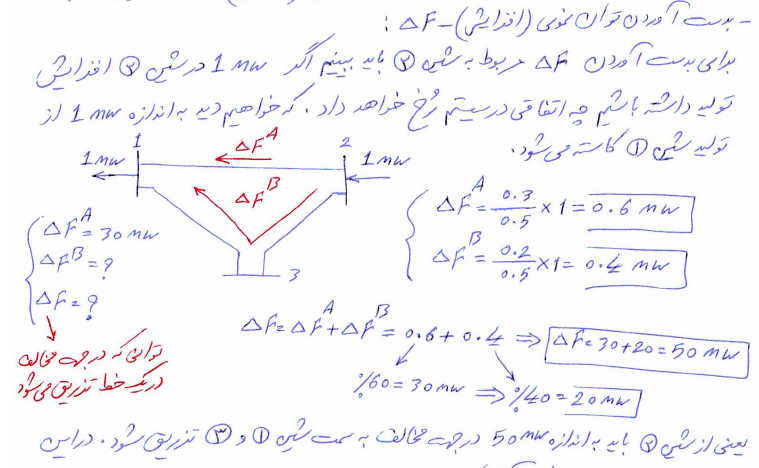 - بدست آوردن توان نموی (افزایش) - ΔF :
برای بدست آوردن ΔF مربوط به شین ② باید ببینیم اگر 1 MW در شین ② افزایش
تولید داشته باشیم چه اتفاقی در سیستم رُخ خواهد داد. که خواهیم دید به اندازه 1 MW از
تولید شین ① کاسته می‌شود.
1
2
1 MW
ΔF^A
1 MW
ΔF^B
3
ΔF^A = 0.3/0.5 × 1 = 0.6 MW
ΔF^B = 0.2/0.5 × 1 = 0.4 MW
ΔF^A = 30 MW
ΔF^B = ?
ΔF = ?
توانی که در جهت مخالف
در یک خط تزریق می‌شود
ΔF = ΔF^A + ΔF^B = 0.6 + 0.4 ⇒ ΔF = 30 + 20 = 50 MW
%60 = 30 MW ⇒ %40 = 20 MW
یعنی از شین ② باید به اندازه 50 MW در جهت مخالف به سمت شین ① و ③ تزریق شود. در این